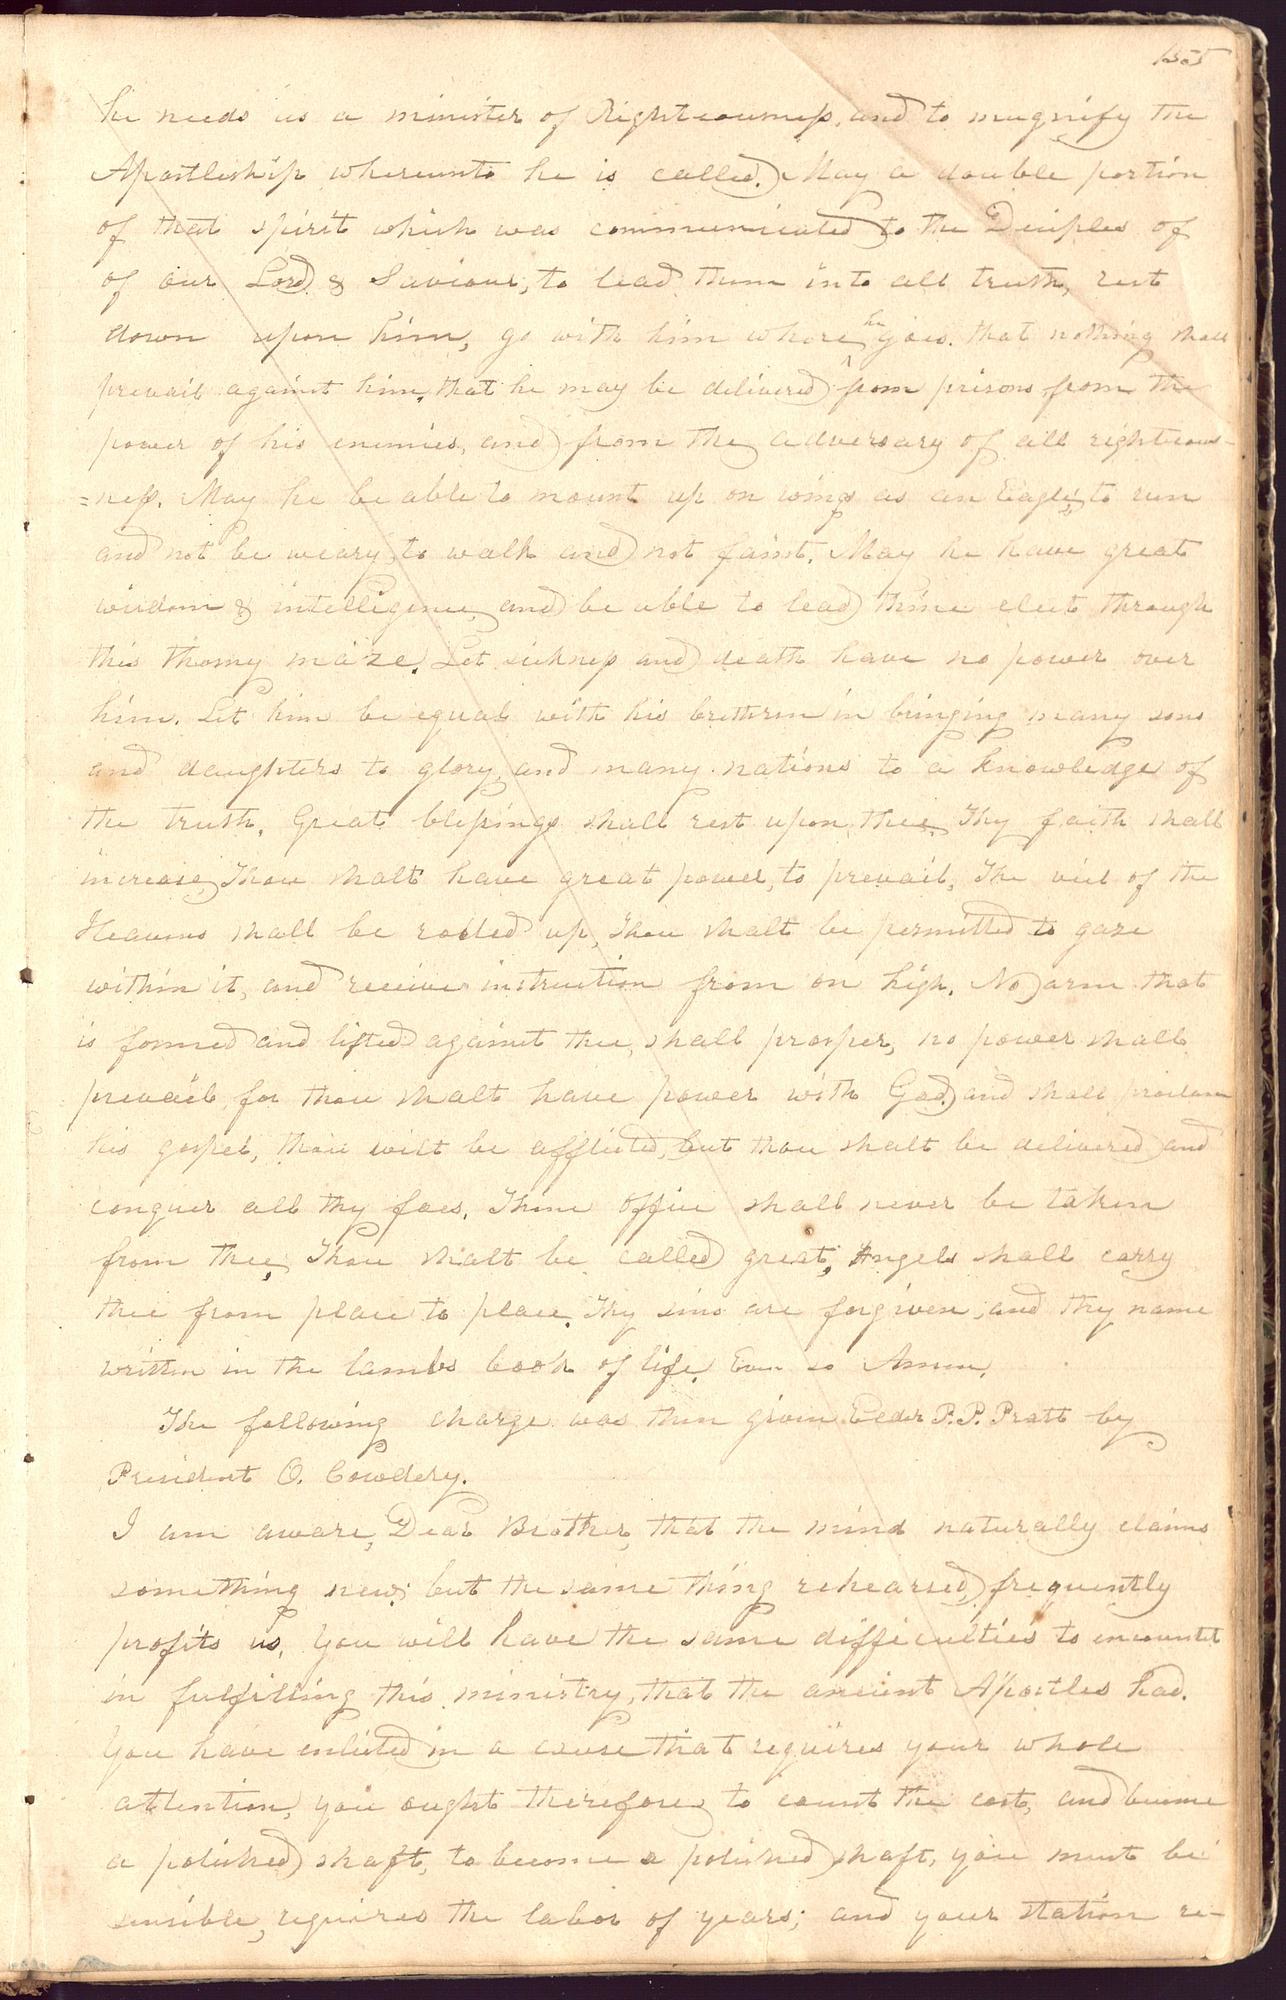 155
he needs as a minister of Righteousness, and to magnify the
Apostleship whereunto he is called. May a double portion
of that spirit which was communicated to the Diciples of
of our Lord & Saviour, to lead them into all truth, rest
down upon him, go with him where he goes. that nothing shall
prevail against him, that he may be delivered from prisons, from the
power of his enemies, and from the adversary of all righteous-
=ness. May he be able to mount up on wings as an Eagle, to run
and not be weary, to walk and not faint. May he have great
wisdom & intelligence, and be able to lead thine elect through
this thorny maze. Let sickness and death have no power over
him. Let him be equal with his brethren in bringing many sons
and daughters to glory, and many nations to a knowledge of
the truth. Great blessings shall rest upon thee. Thy faith shall
increase, Thou shalt have great power, to prevail, The veil of the
Heavens shall be rolled up, Thou shalt be permitted to gaze
within it, and receive instruction from on high. No arm that
is formed and lifted against thee, shall prosper, no power shall
prevail, for thou shalt have power with God, and shall proclaim
his gospel, thou wilt be afflicted, but thou shalt be delivered and
conquer all thy foes. Thine office shall never be taken
from thee, Thou shalt be called great, Angels shall carry
thee from place to place. Thy sins are forgiven, and thy name
written in the lambs book of life. Even so Amen.
The following charge was then given Elder P. P. Pratt by
President O. Cowdery.
I am aware, Dear Brother, that the mind naturally claims
something new; but the same thing rehearsed, frequently
profits us. You will have the same difficulties to encounter
in fulfilling this ministry, that the ancient Apostles had.
You have enlisted in a cause that requires your whole
attention, you ought therefore, to count the cost, and become
a polished shaft, to become a polished shaft, you must be
sensible, requires the labor of years; and your station re-